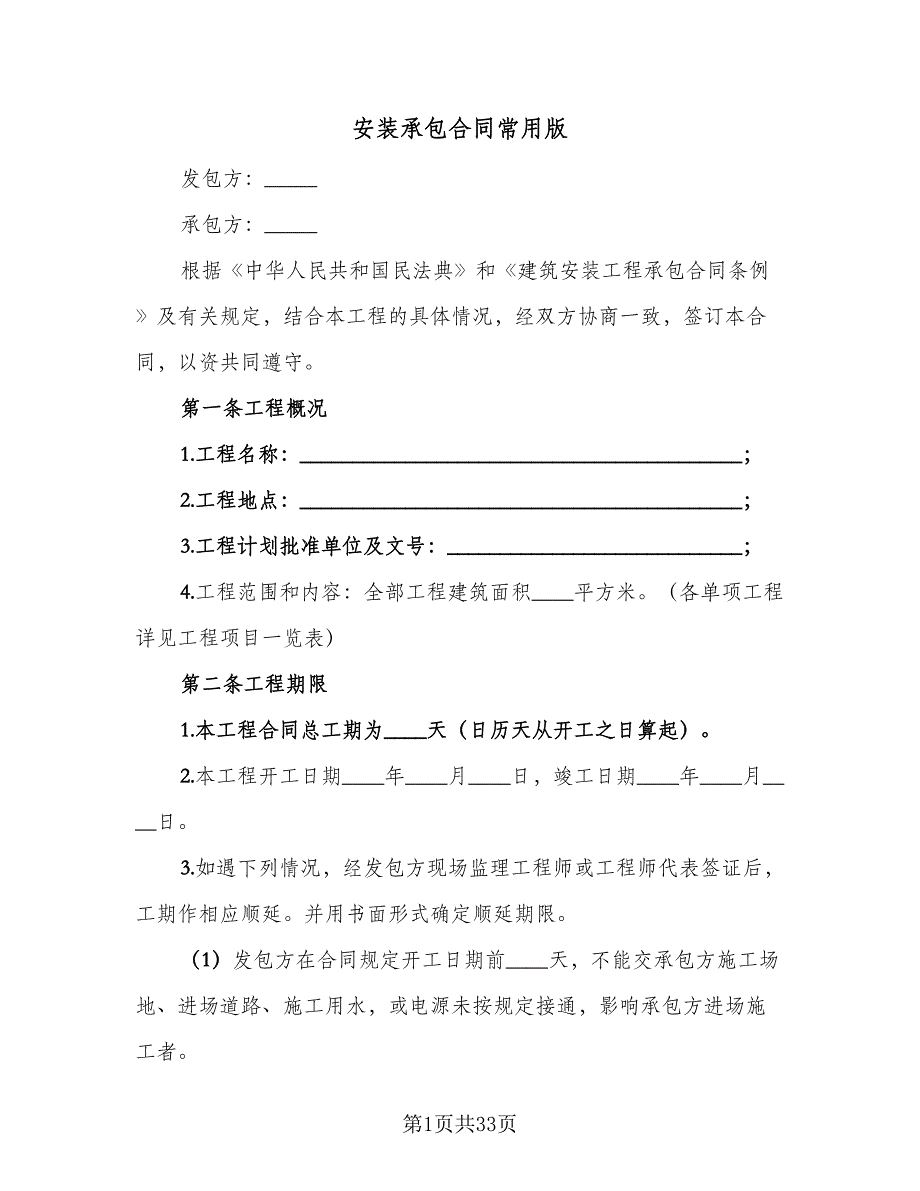 安装承包合同常用版
发包方：_____
承包方：_____
根据《中华人民共和国民法典》和《建筑安装工程承包合同条例
》及有关规定，结合本工程的具体情况，经双方协商一致，签订本合
同，以资共同遵守。
第一条工程概况
1.工程名称：__________________________________________；
2.工程地点：__________________________________________；
3.工程计划批准单位及文号：____________________________；
4.工程范围和内容：全部工程建筑面积____平方米。（各单项工程
详见工程项目一览表）
第二条工程期限
1.本工程合同总工期为____天（日历天从开工之日算起）。
2.本工程开工日期____年____月____日，竣工日期____年____月__
__日。
3.如遇下列情况，经发包方现场监理工程师或工程师代表签证后，
工期作相应顺延。并用书面形式确定顺延期限。
（1）发包方在合同规定开工日期前____天，不能交承包方施工场
地、进场道路、施工用水，或电源未按规定接通，影响承包方进场施
工者。
第1页共33页